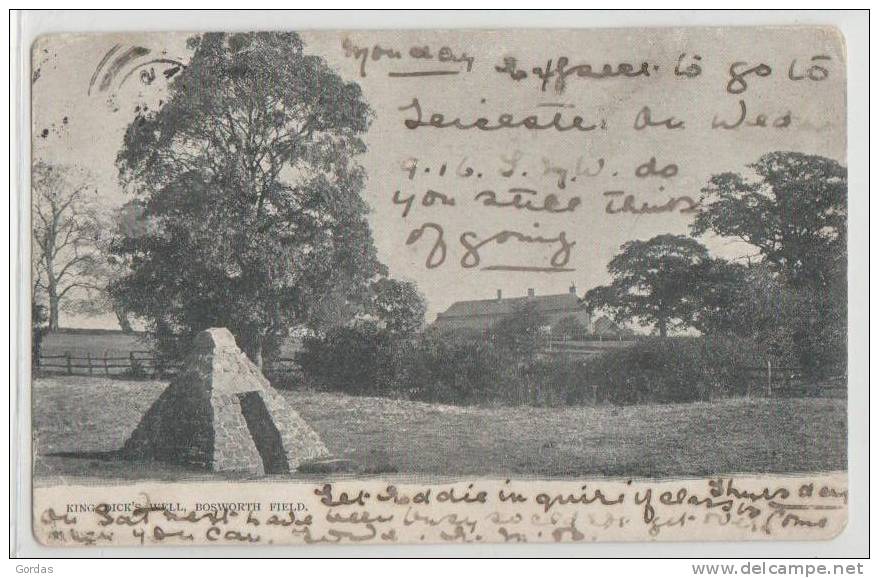 Monday Expect to go to
Leicester on Wed
9.16. L. N. W. do
you still think
of going
KING DICK'S WELL, BOSWORTH FIELD.
Let Eddie inquire if class is Thursday
on Sat next have been busy so could not get over, Come
when you can. Love.
Gordas
www.delcampe.net